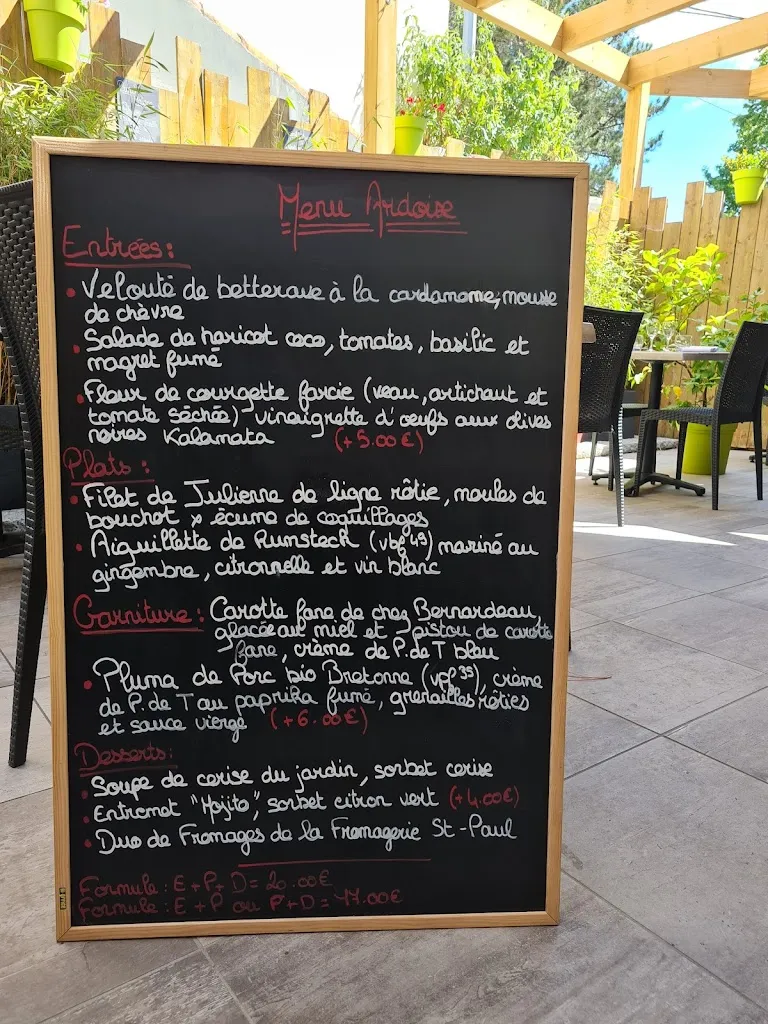 Menu Ardoise
Entrées :
• Velouté de betterave à la cardamome, mousse
de chèvre
• Salade de haricot coco, tomates, basilic et
magret fumé
• Fleur de courgette farcie (veau, artichaut et
tomate séchée) vinaigrette d'oeufs aux olives
noires Kalamata (+5.00€)
Plats :
• Filet de Julienne de ligne rôtie, moules de
bouchot x écume de coquillages
• Aiguillette de Rumsteck (vbf 49) mariné au
gingembre, citronnelle et vin blanc
Garniture : Carotte fane de chez Bernardeau
glacée au miel et pistou de carotte
fane, crème de P.de T bleu
• Pluma de Porc bio Bretonne (vpf 35), crème
de P. de T au paprika fumé, grenailles rôties
et sauce vierge (+6.00€)
Desserts :
• Soupe de cerise du jardin, sorbet cerise
• Entremet "Mojito", sorbet citron vert (+4.00€)
• Duo de Fromages de la Fromagerie St-Paul
Formule : E + P + D = 20.00€
Formule : E + P ou P + D = 17.00€